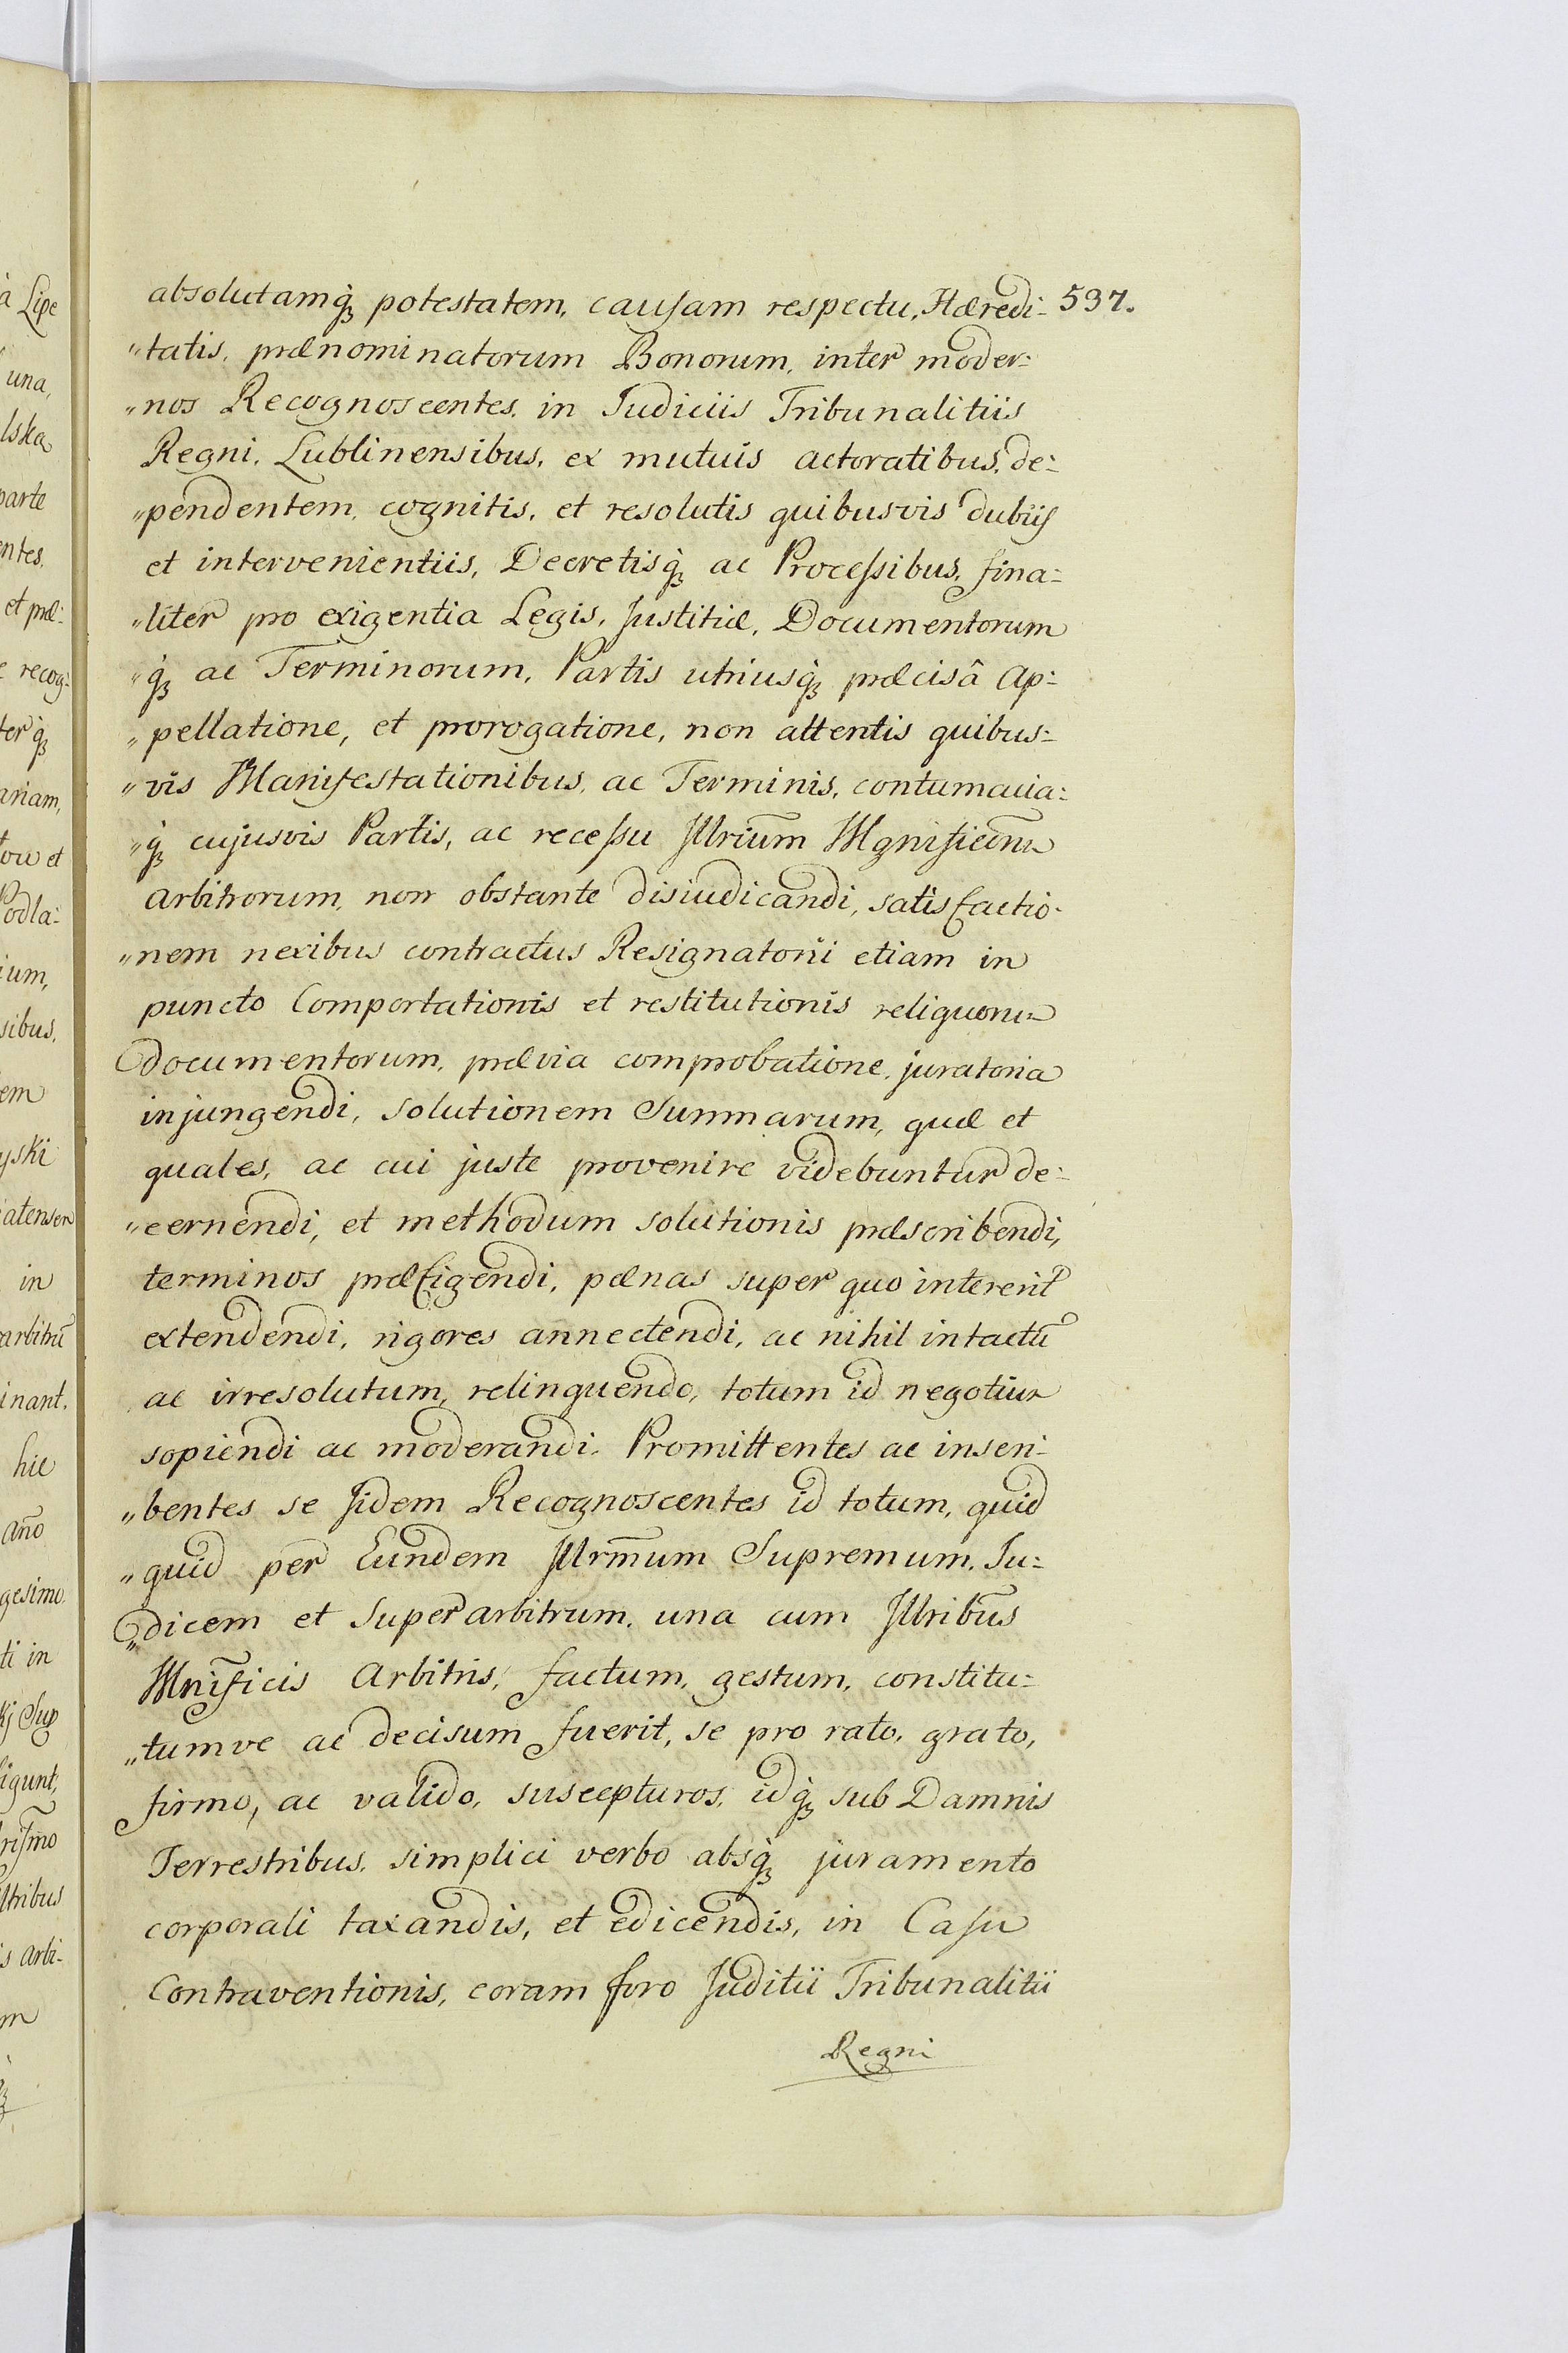 absolutamq́ȝ potestatem, causam respectu, Hæredi- 537.
"tatis, prænominatorum Bonorum, inter moder:
"nos Recognoscentes, in Judiciis Tribunalitiis
Regni, Lublinensibus, ex mutuis actoratibus, de:
"pendentem, cognitis, et resolutis quibusvis dubiis
et intervenientiis, Decretisq́ȝ ac Processibus, fina:
"liter pro exigentia Legis, Justitiæ, Documentorum
"q́ȝ ac Terminorum, Partis utriusq́ȝ præcisâ Ap:
"pellatione, et prorogatione, non attentis quibus:
"vis Manifestationibus, ac Terminis, contumacia:
"q́ȝ cujusvis Partis, ac recessu Illriũm Mgnificõru
Arbitrorum, non obstante disiudicandi, satisfactio-
"nem nexibus contractus Resignatorii etiam in
puncto Comportationis et restitutionis reliquoru
documentorum, prævia comprobatione, juratoria
injungendi, solutionem Summarum, quæ et
quales, ac cui juste provenire videbuntur de:
"cernendi, et methodum solutionis præscribendi,
terminos præfigendi, pænas super quo intererit
extendendi, rigores annectendi, ac nihil intactũ
ac irresolutum, relinquendo, totum id negotiu
sopiendi ac moderandi. Promittentes ac inscri-
"bentes se Iidem Recognoscentes id totum, quid
"quid per Eundem Illrm̃um Supremum, Ju:
"dicem et Superarbitrum, una cum Illribũs
Mnif̃icis Arbitris, factum, gestum, constitu:
"tumve ac decisum fuerit, se pro rato, grato,
firmo, ac valido, suscepturos, idq́ȝ sub Damnis
Terrestribus, simplici verbo absq́ȝ juramento
corporali taxandis, et edicendis, in Casu
Contraventionis, coram foro Juditii Tribunalitii
Regni